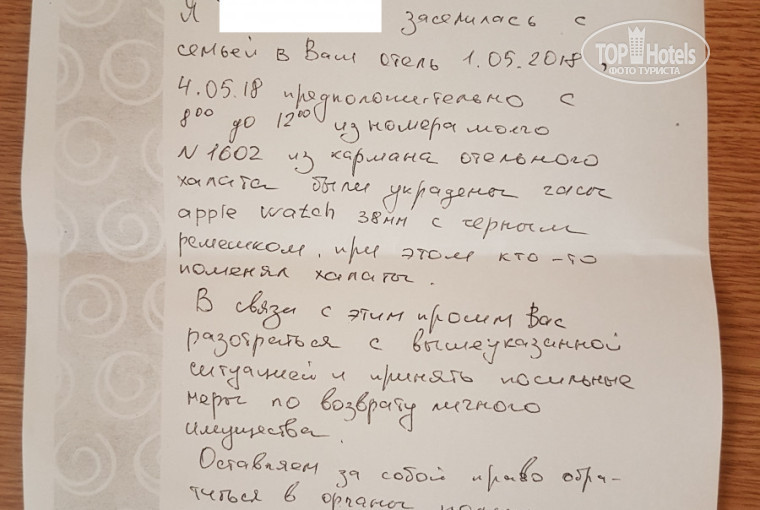 Я заселилась с
семьей в Вам отель 1.05.2018,
4.05.18 предположительно с
8⁰⁰ до 12⁰⁰ из номера моего
N 1602 из кармана отельного
халата были украдены часы
apple watch 38мм с черным
ремешком, при этом кто-то
поменял халаты.
В связи с этим просим Вас
разобраться с вышеуказанной
ситуацией и принять посильные
меры по возврату личного
имущества.
Оставляем за собой право обра-
титься в органы
TOPHotels
ФОТО ТУРИСТА